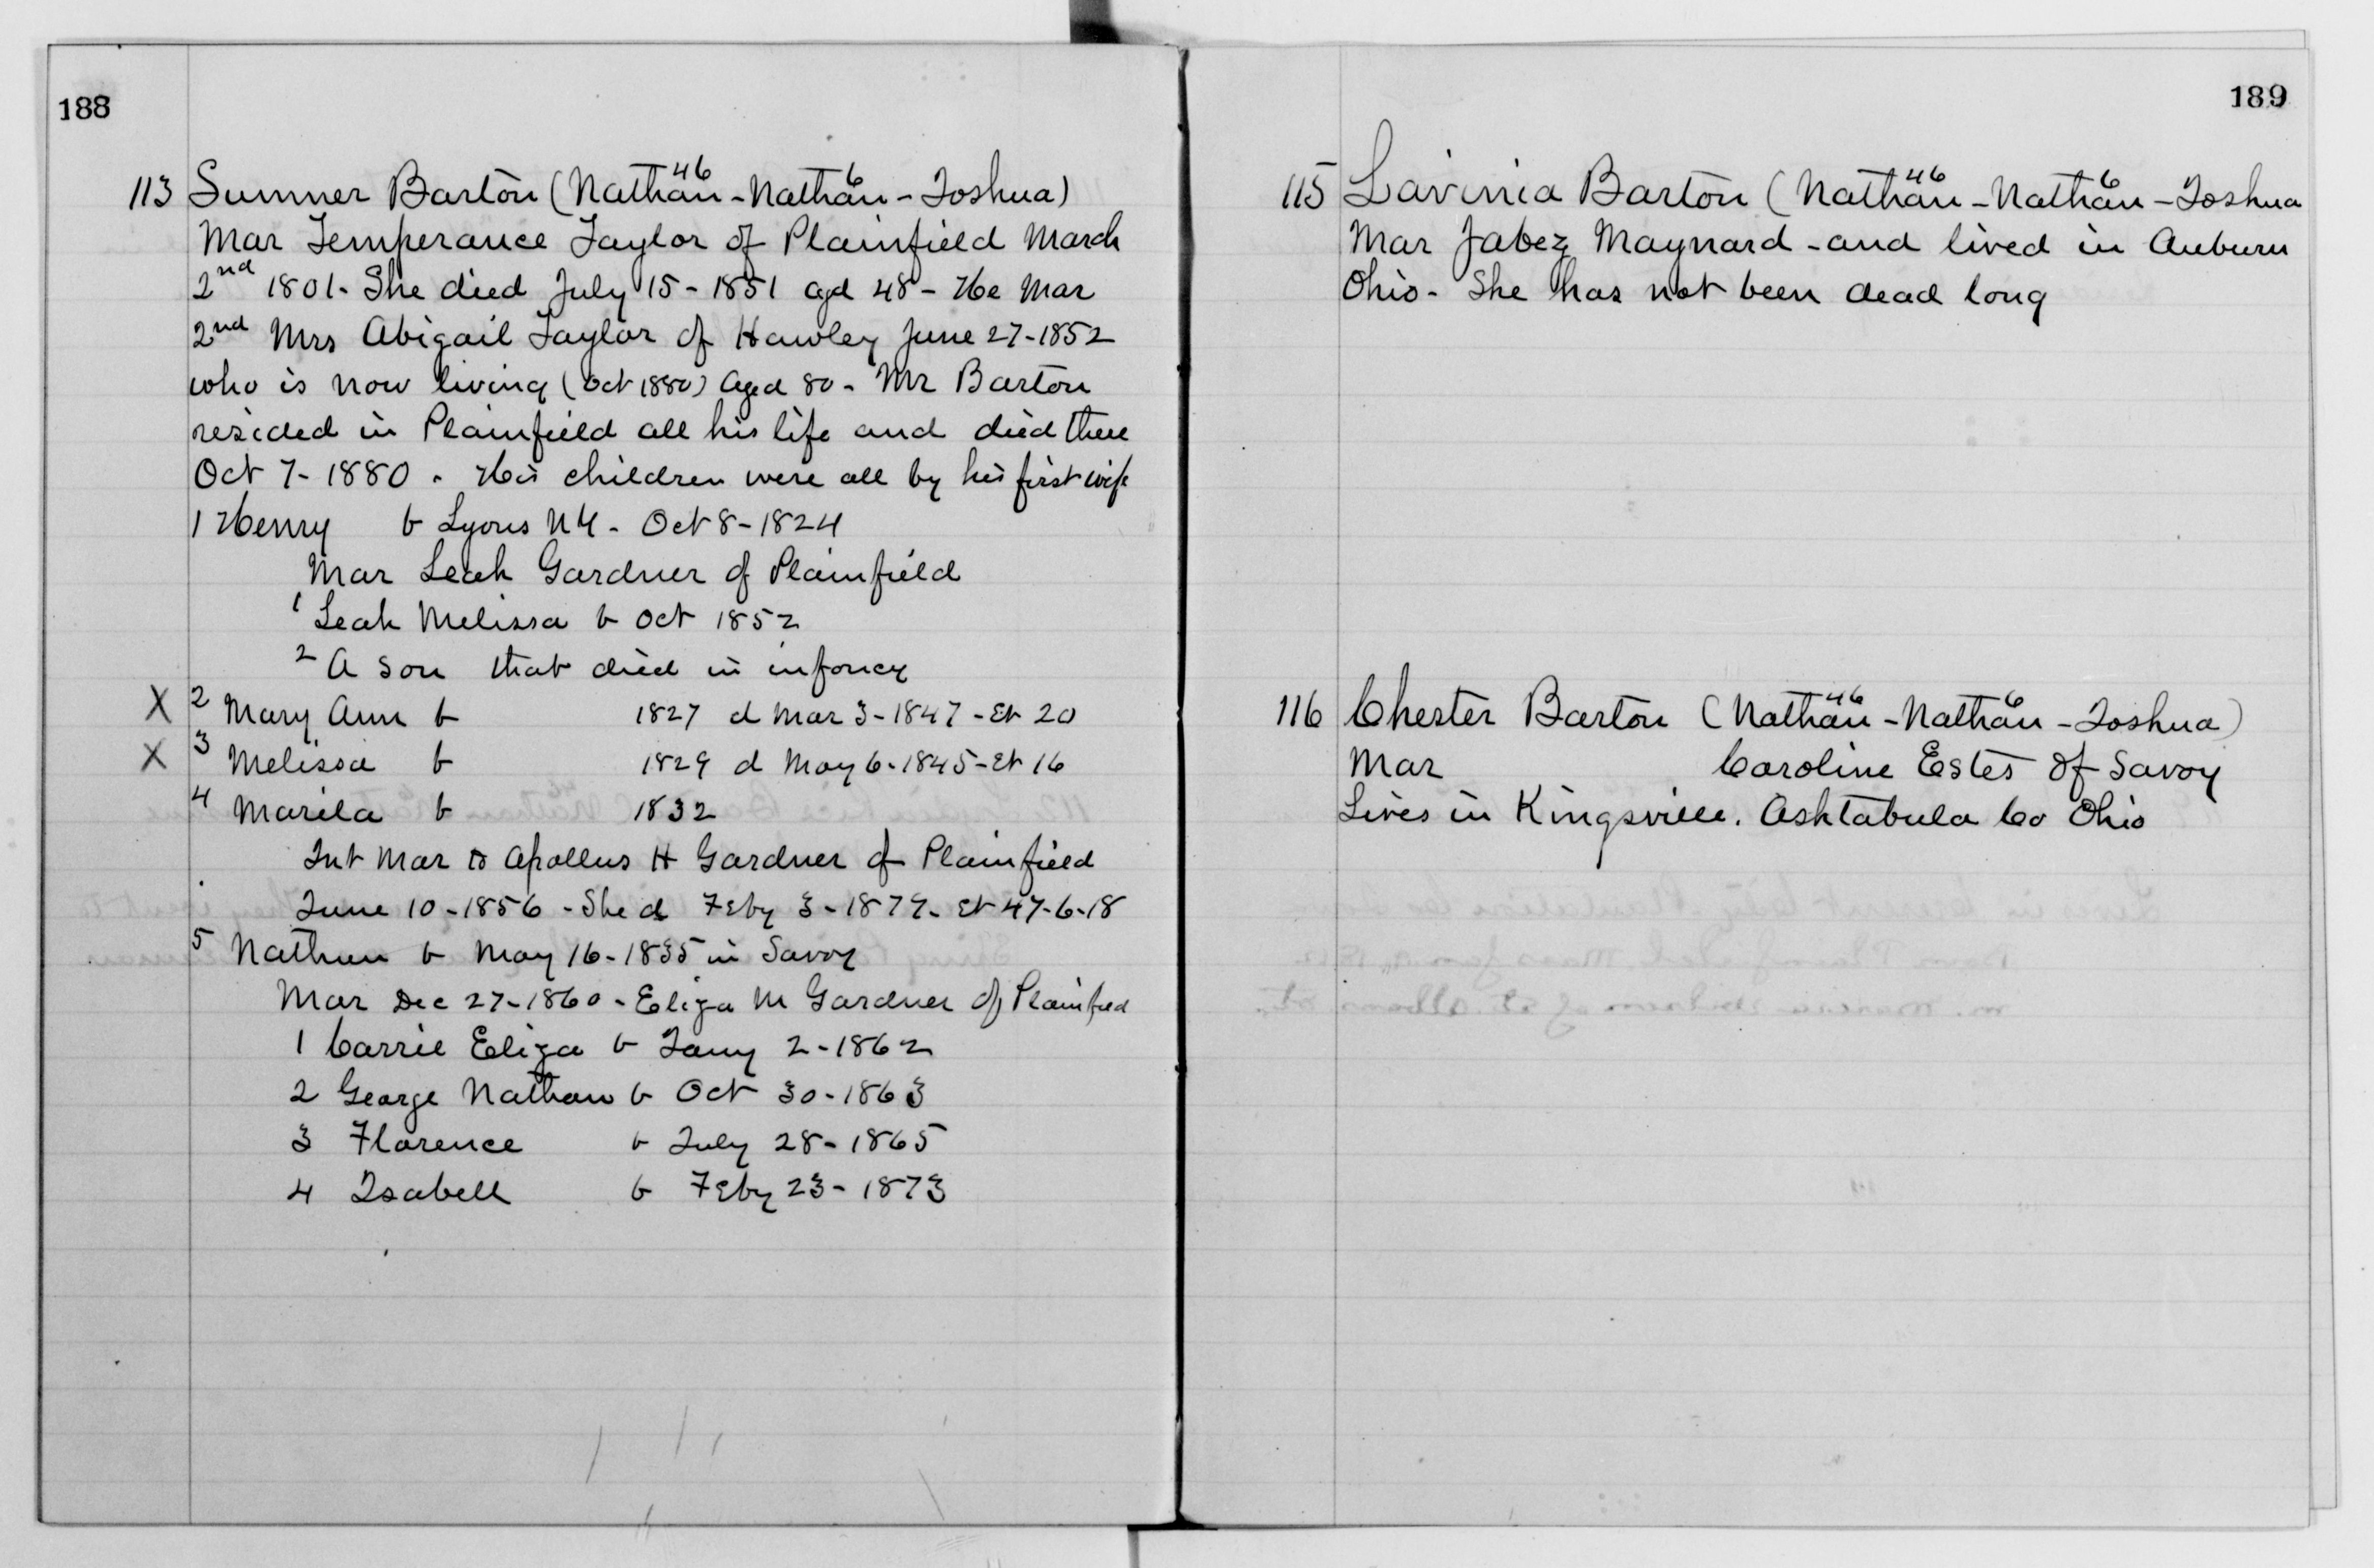 188
113 Sumner Barton (Nathan46 - Nathan6 - Joshua)
Mar Temperance Taylor of Plainfield March
2nd 1801. She died July 15 - 1851 agd 48 - He Mar
2nd Mrs Abigail Taylor of Hawley June 27 - 1852
who is now living (Oct 1880) Aged 80 - Mr Barton
resided in Plainfield all his life and died there
Oct 7 - 1880. His children were all by his first wife
1 Henry b Lyons NY - Oct 8 - 1824
Mar Leah Gardner of Plainfield
1 Leah Melissa b Oct 1852
2 A son that died in infancy
X 2 Mary Ann b 1827 d Mar 3 - 1847 - Et 20
X 3 Melissa b 1829 d May 6 - 1845 - Et 16
4 Marila b 1832
Int Mar to Apollus H Gardner of Plainfield
June 10 - 1856 - She d Feby 3 - 1879 - Et 47-6-18
5 Nathan b May 16 - 1835 in Savoy
Mar Dec 27 - 1860 - Eliza M Gardner of Plainfied
1 Carrie Eliza b Jany 2 - 1862
2 George Nathan b Oct 30 - 1863
3 Florence b July 28 - 1865
4 Isabell b Feby 23 - 1873
189
115 Lavinia Barton (Nathan46 - Nathan6 - Joshua
Mar Jabez Maynard - and lived in Auburn
Ohio - She has not been dead long
116 Chester Barton (Nathan46 - Nathan6 - Joshua)
Mar Caroline Estes of Savoy
Lives in Kingsville. Ashtabula Co Ohio